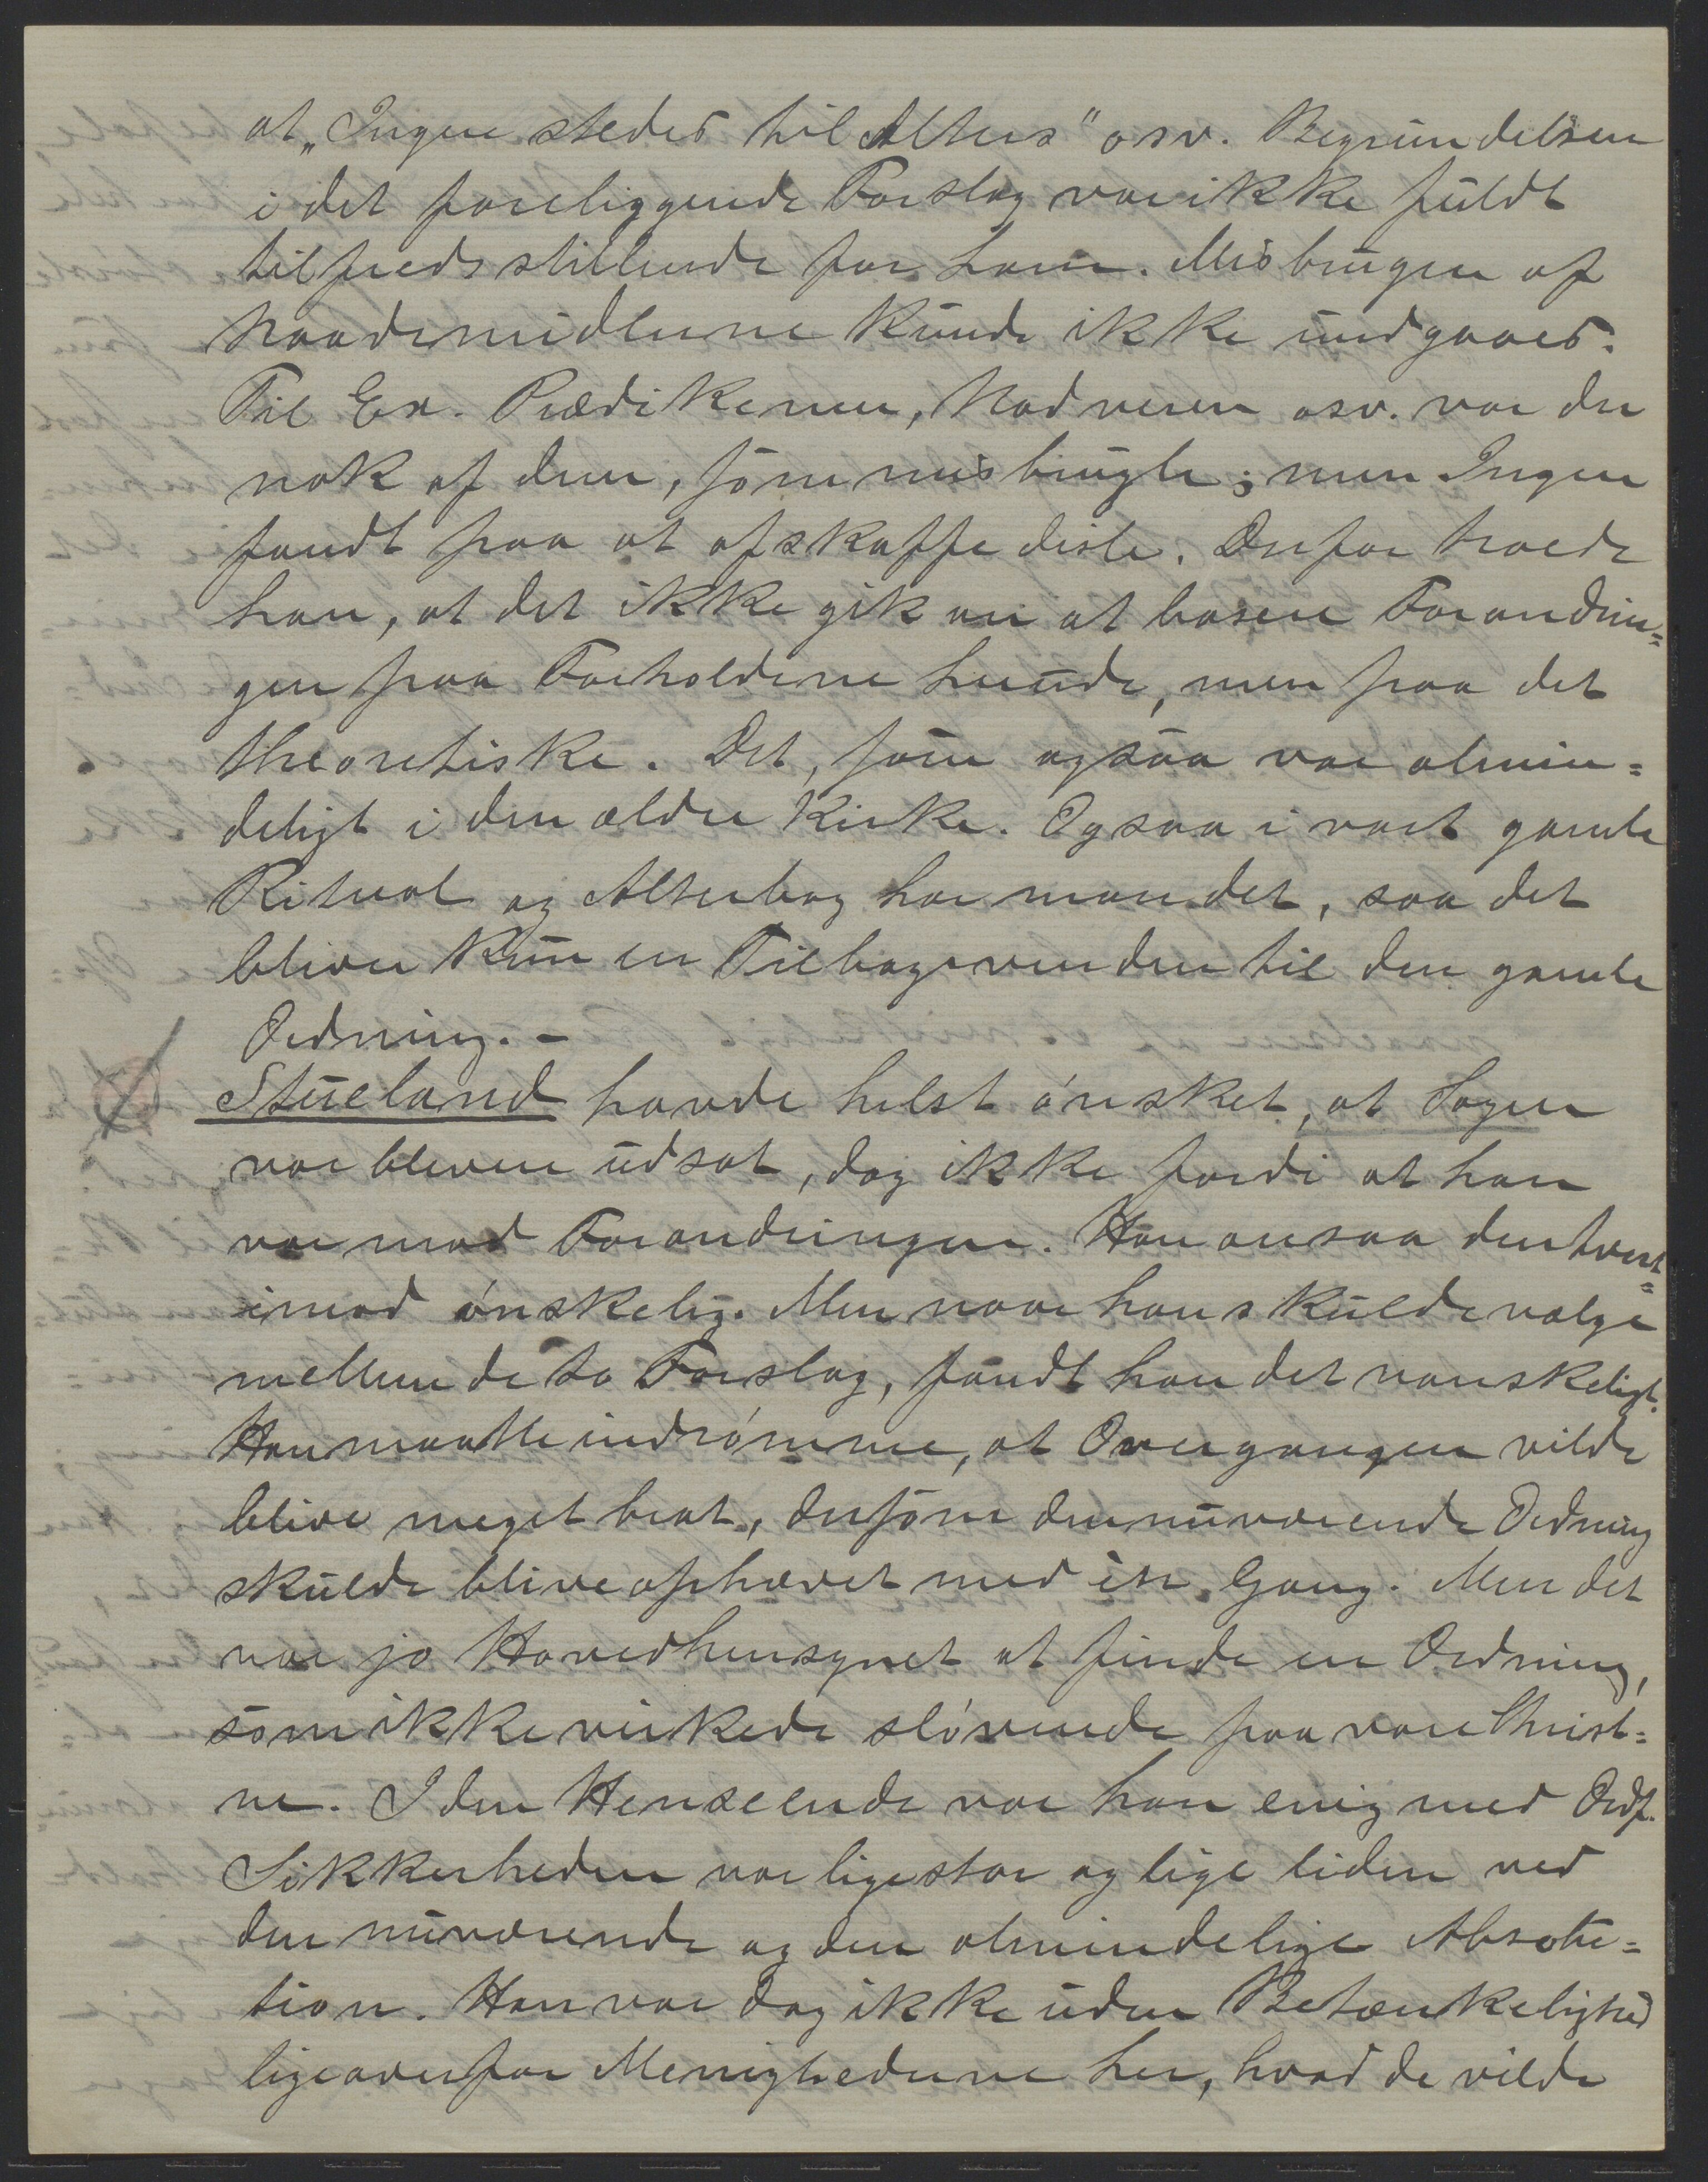 at „Ingen stedes til Alters" osv. Begrundelsen
i det foreliggende Forslag var ikke fuldt
tilfredsstillende for ham. Misbrugen af
Naademidlerne kunde ikke undgaaes.
Til Ex. Prædikenen, Nadveren osv. var der
nok af dem, som misbrugte; men Ingen
fandt paa at afskaffe disse. Derfor troede
han, at det ikke gik an at basere Forandrin=
gen paa Forholdene herude, men paa det
theoretiske. Det, som ogsaa var almin=
deligt i den ældre Kirke. Ogsaa i vort gamle
Ritual og Alterbog har man det, saa det
bliver kun en Tilbagevenden til den gamle
Ordning. -
Stueland havde helst ønsket, at Sagen
var bleven udsat, dog ikke fordi at han
var mod Forandringen. Han ansaa den tvert=
imod ønskelig. Men naar han skulde vælge
mellem de to Forslag, fandt han det vanskeligt.
Han maatte indrømme, at Overgangen vilde
blive meget brat, dersom den nuværende Ordning
skulde blive ophævet med én Gang. Men det
var jo Hovedhensynet at finde en Ordning,
som ikke virkede sløvende paa vore Christ=
ne. I den Henseende var han enig med Ordf.
Sikkerheden var lige stor og lige liden ved
den nuværende og den almindelige Absolu=
tion. Han var dog ikke uden Betænkelighed
ligeoverfor Menighederne her, hvad de vilde